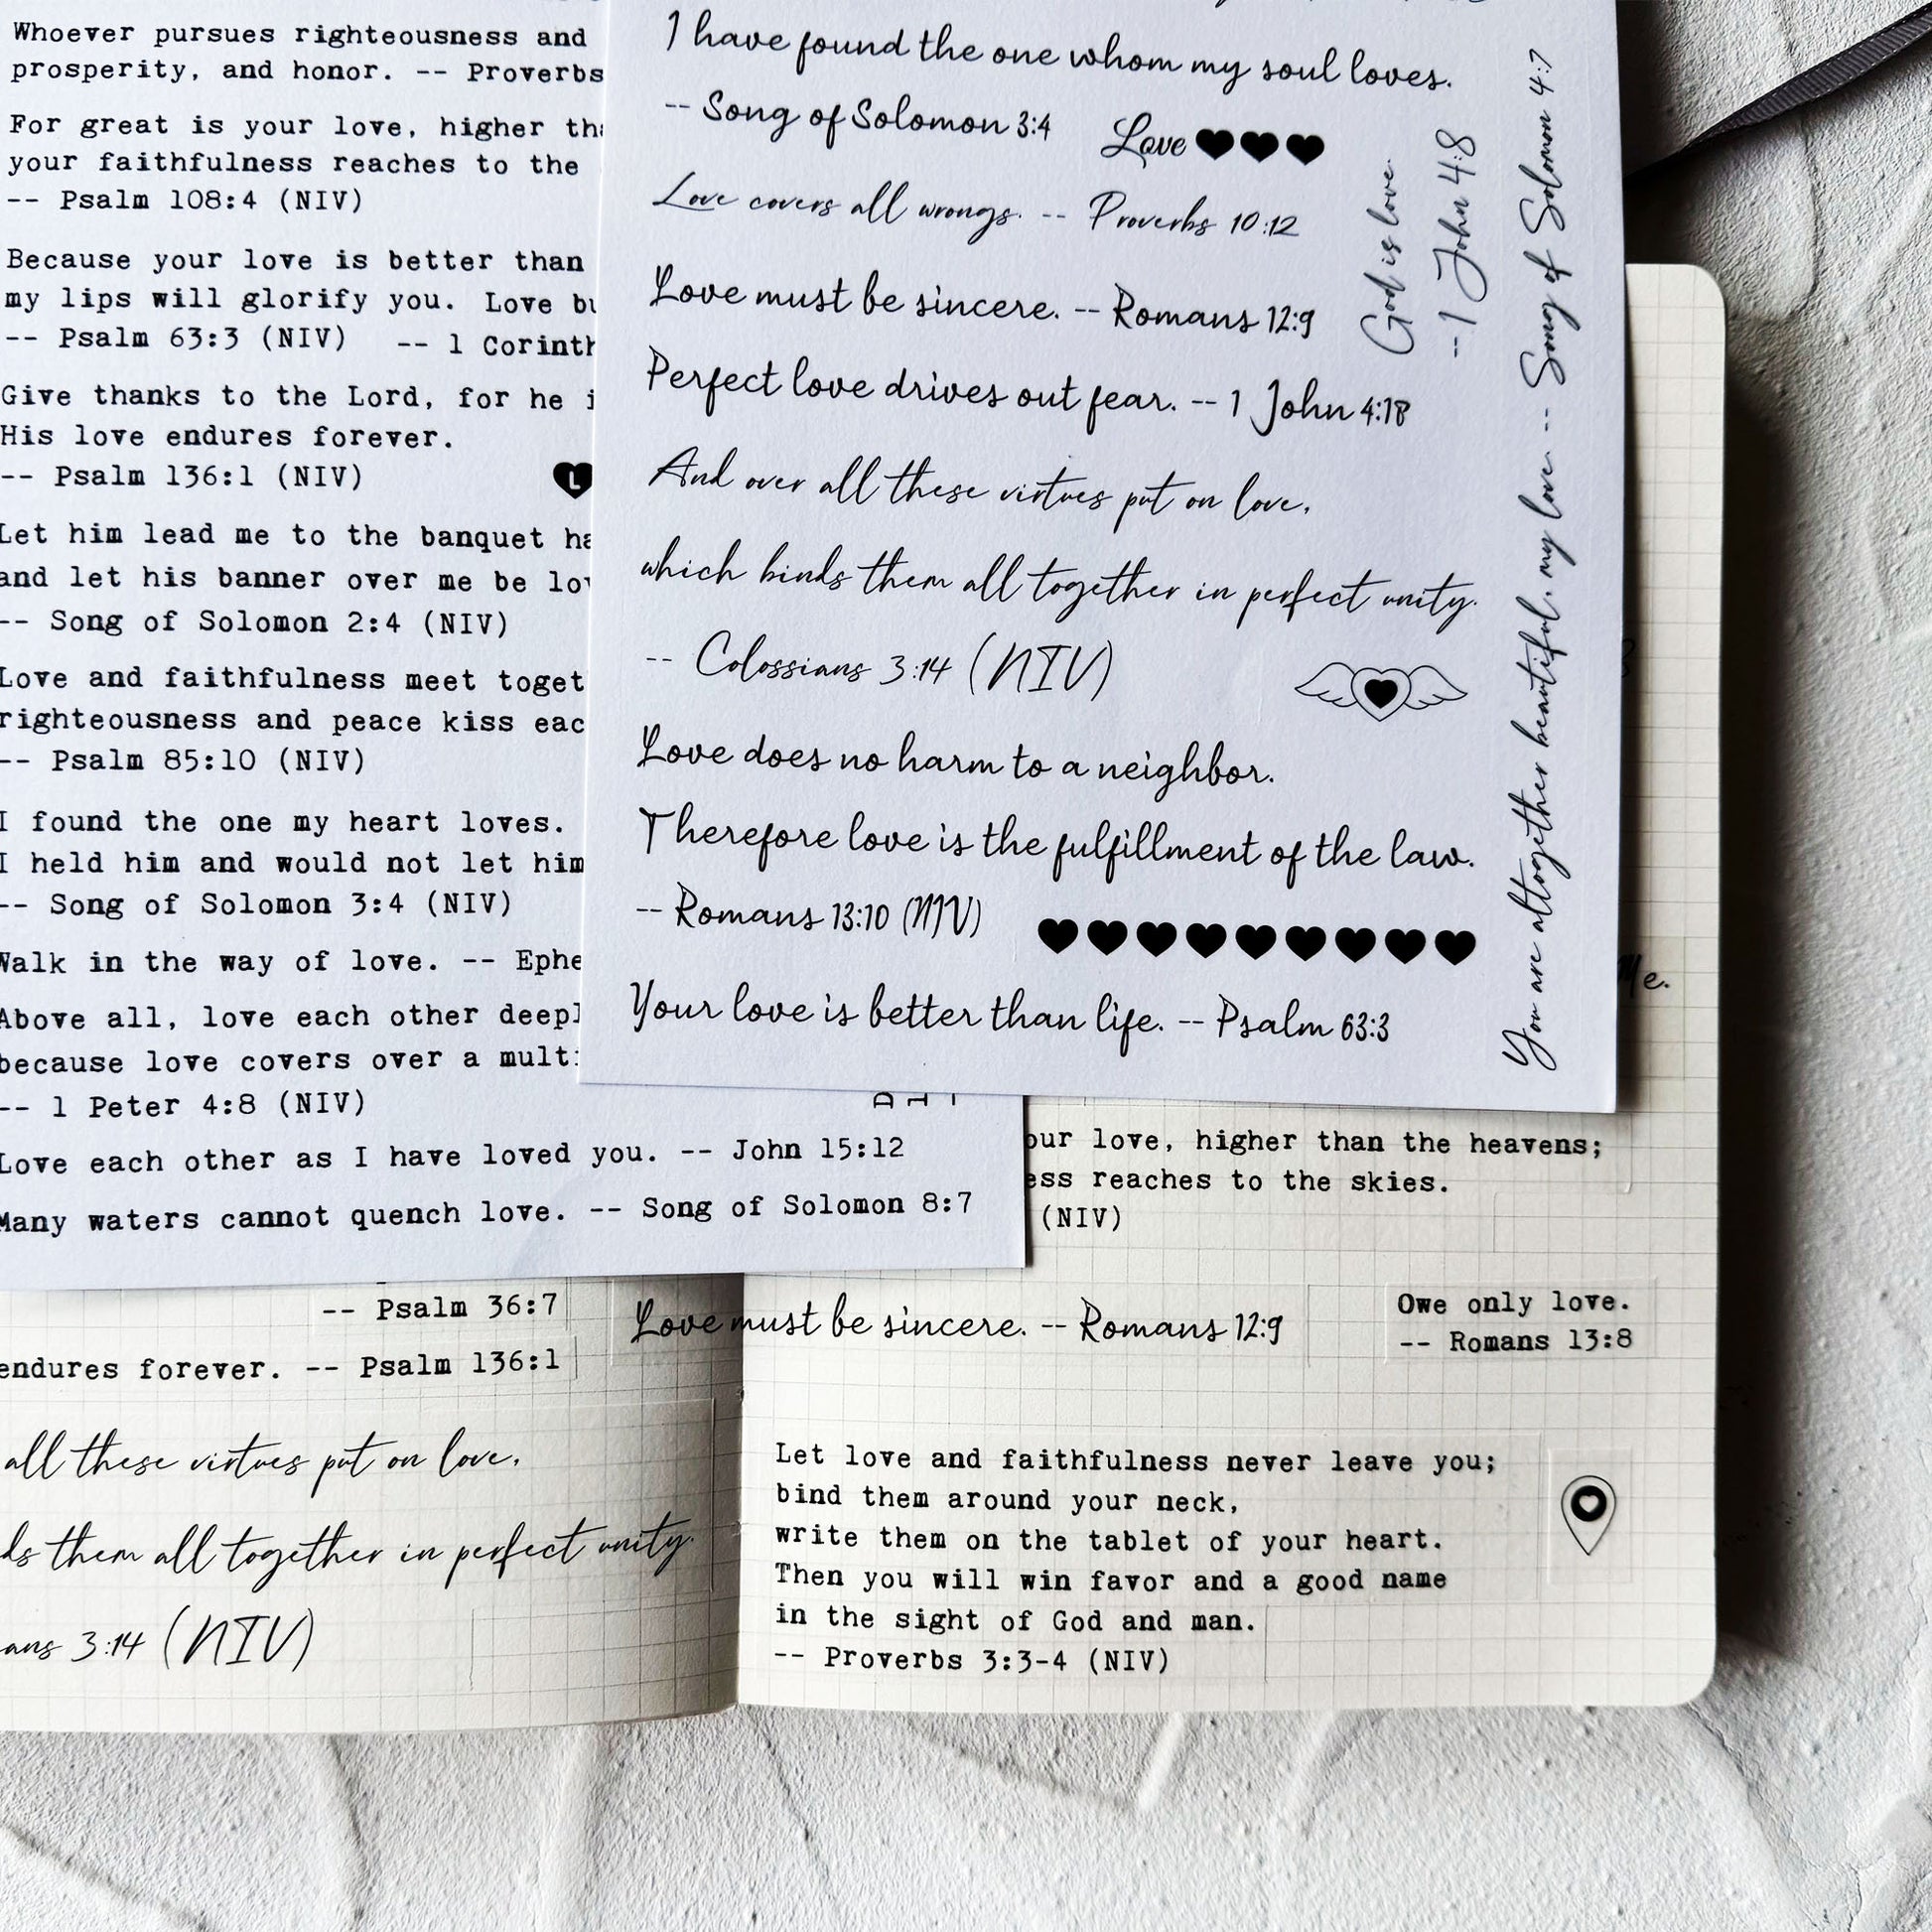 Whoever pursues righteousness and
prosperity, and honor. -- Proverbs
For great is your love, higher
your faithfulness reaches to the
-- Psalm 108:4 (NIV)
Because your love is better than
my lips will glorify you. Love
-- Psalm 63:3 (NIV) -- 1
Give thanks to the Lord, for he
His love endures forever.
-- Psalm 136:1 (NIV)
L
Let him lead me to the banquet
and let his banner over me be
-- Song of Solomon 2:4 (NIV)
Love and faithfulness meet
righteousness and peace kiss
-- Psalm 85:10 (NIV)
I found the one my heart loves.
I held him and would not let him
-- Song of Solomon 3:4 (NIV)
Walk in the way of love. --
Above all, love each other
because love covers over a
-- 1 Peter 4:8 (NIV)
Love each other as I have loved you. -- John 15:12
Many waters cannot quench love. -- Song of Solomon 8:7
I have found the one whom my soul loves.
-- Song of Solomon 3:4
Love
Love covers all wrongs. -- Proverbs 10:12
Love must be sincere. -- Romans 12:9
Perfect love drives out fear. -- 1 John 4:18
And over all these virtues put on love,
which binds them all together in perfect unity.
-- Colossians 3:14 (NIV)
Love does no harm to a neighbor.
Therefore love is the fulfillment of the law.
-- Romans 13:10 (NIV)
Your love is better than life. -- Psalm 63:3
God is love.
-- 1 John 4:8
You are altogether beautiful, my love. -- Song of Solomon 4:7
Me.
our love, higher than the heavens;
ess reaches to the skies.
(NIV)
-- Psalm 36:7
endures forever. -- Psalm 136:1
all these virtues put on love,
ds them all together in perfect unity.
ans 3:14 (NIV)
Love must be sincere. -- Romans 12:9
Owe only love.
-- Romans 13:8
Let love and faithfulness never leave you;
bind them around your neck,
write them on the tablet of your heart.
Then you will win favor and a good name
in the sight of God and man.
-- Proverbs 3:3-4 (NIV)